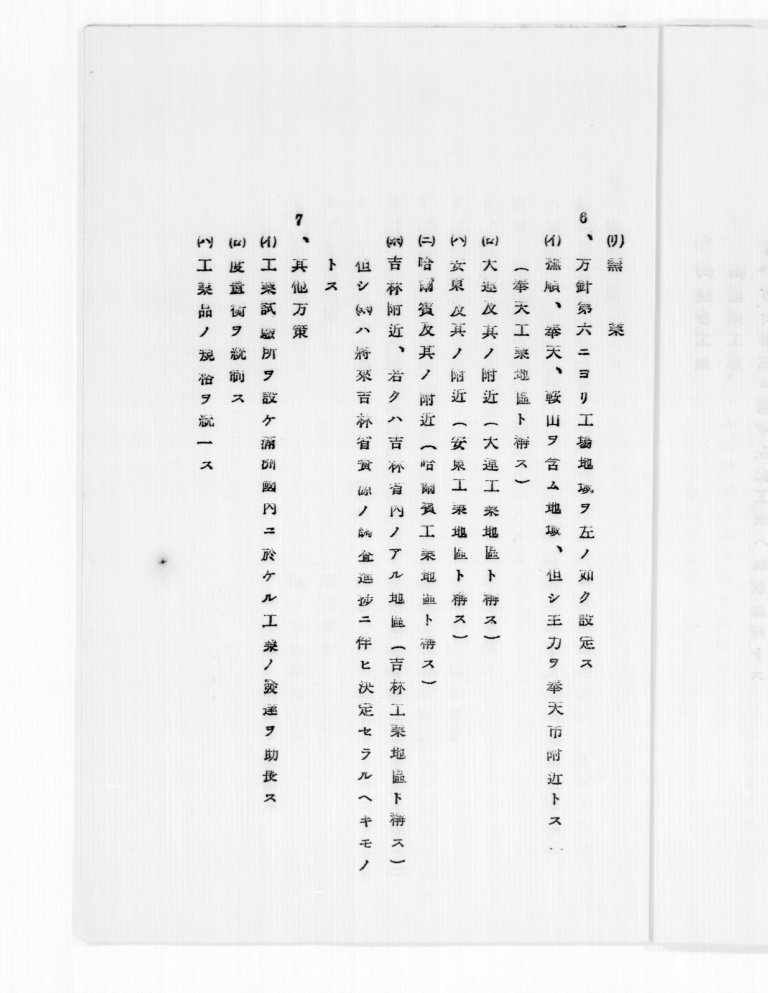 (リ) 窯業
6、方針第六ニヨリ工場地域ヲ左ノ如ク設定ス
(イ) 撫順、奉天、鞍山ヲ含ム地域、但シ主力ヲ奉天市附近トス
(奉天工業地區ト稱ス)
(ロ) 大連及其ノ附近(大連工業地區ト稱ス)
(ハ) 安東及其ノ附近(安東工業地區ト稱ス)
(ニ) 哈爾賓及其ノ附近(哈爾賓工業地區ト稱ス)
(ホ) 吉林附近、若クハ吉林省內ノアル地區(吉林工業地區ト稱ス)
但シ(ホ)ハ將來吉林省資源ノ調査進捗ニ伴ヒ決定セラルヘキモノ
トス
7、其他方策
(イ) 工業試驗所ヲ設ケ滿洲國內ニ於ケル工業ノ發達ヲ助長ス
(ロ) 度量衡ヲ統制ス
(ハ) 工業品ノ規格ヲ統一ス